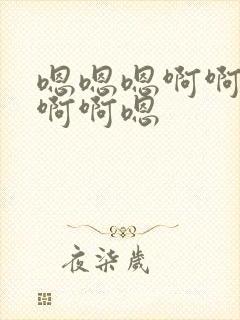 嗯嗯嗯啊啊
啊啊嗯
夜柒歲